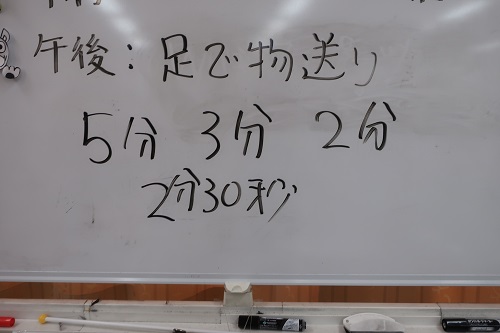 午後：足で物送り
5分 3分 2分
2分30秒